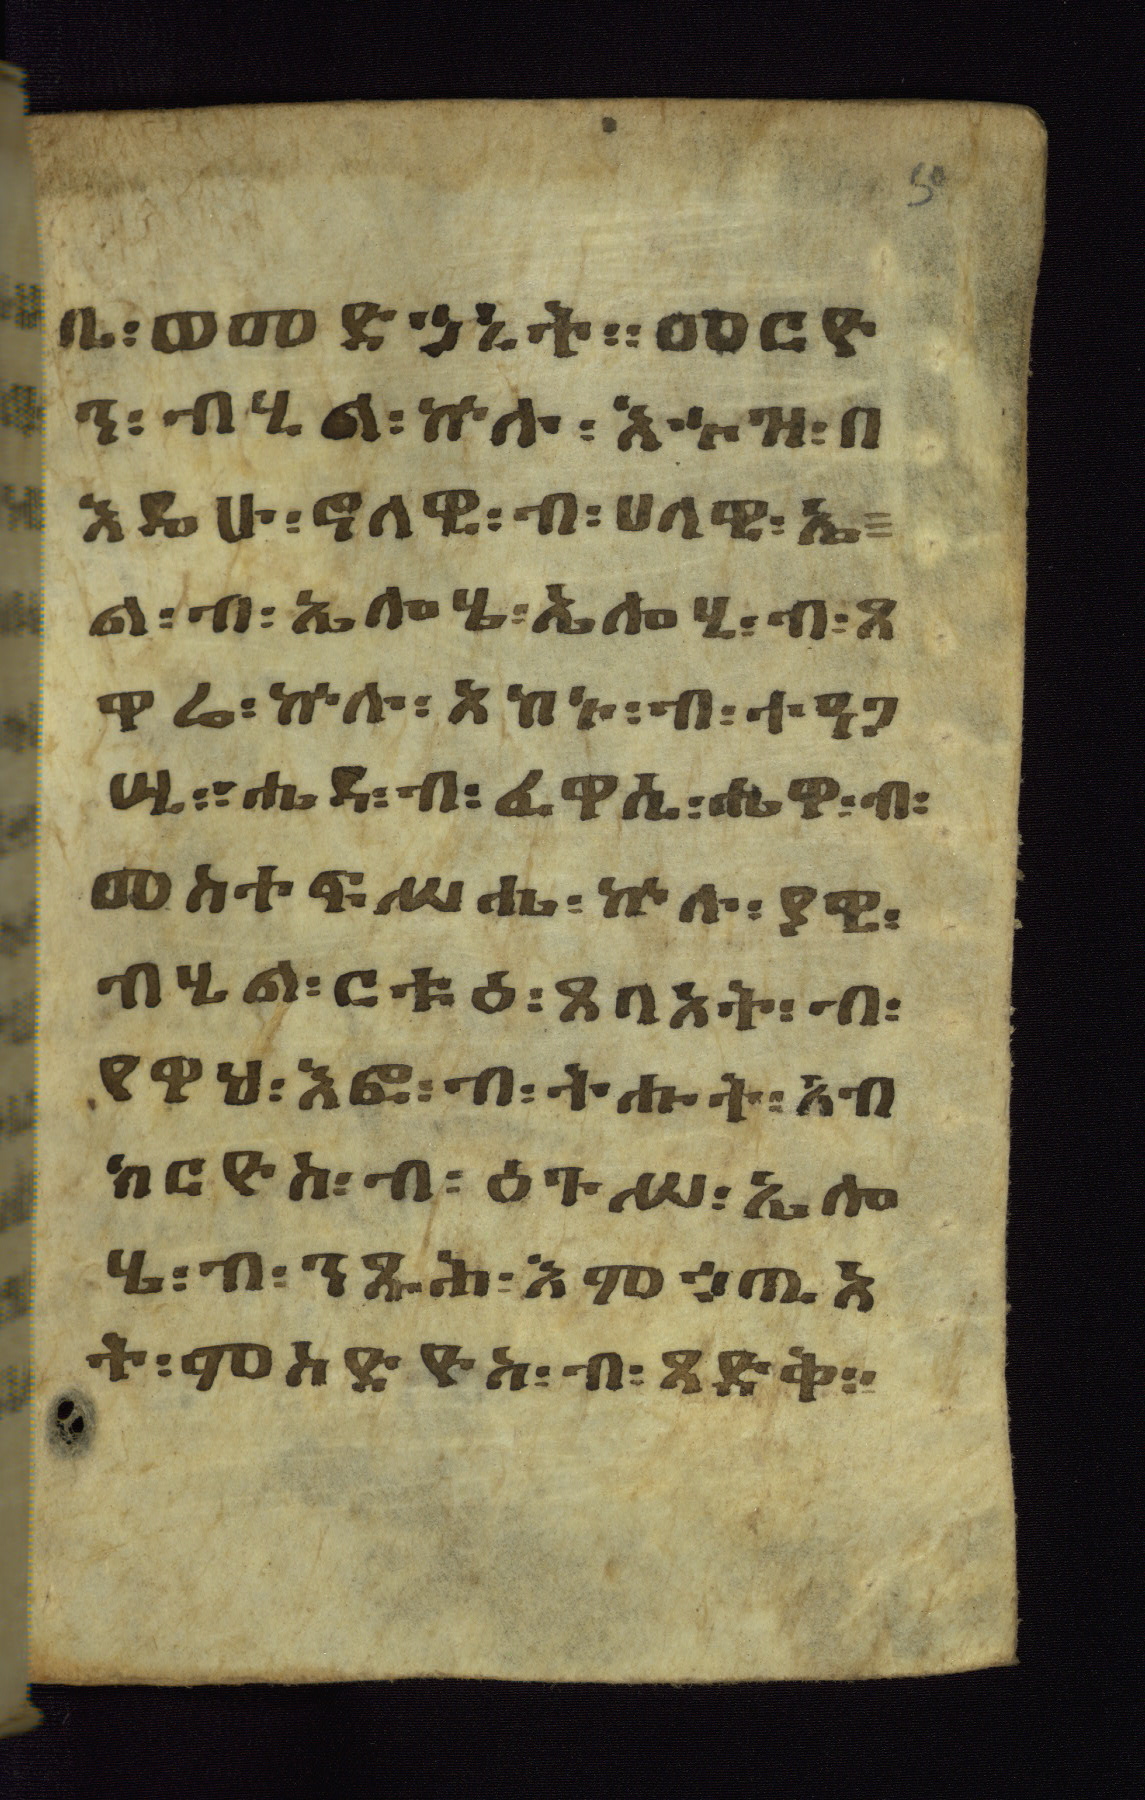 50
ቤ፡ ወመድኃኒት፡፡ መርዮ
ን፡ ብሂል፡ ኵሉ፡ እኁዝ፡ በ
እዴሁ፡ ኖላዊ፡ ብ፡ ሀላዊ፡ ኤ
ል፡ ብ፡ ኤሎሄ፡ ኤሎሂ፡ ብ፡ ጸ
ዋሬ፡ ኵሉ፡ አኩኑ፡ ብ፡ ተዳጋ
ሢ፡፡ ሔዳ፡ ብ፡ ፈዋሲ፡ ሔዋ፡ ብ፡
መስተፍሥሔ፡ ኵሉ፡ ያዊ፡
ብሂል፡ ርቱዕ፡ ጸባኦት፡ ብ፡
የዋህ፡ እፎ፡ ብ፡ ትሑት፡ አብ
ኩርዮስ፡ ብ፡ ዕጉሥ፡ ኤሎ
ሄ፡ ብ፡ ንጹሕ፡ እምኃጢአ
ት፡ ምስድዮስ፡ ብ፡ ጻድቅ፡፡